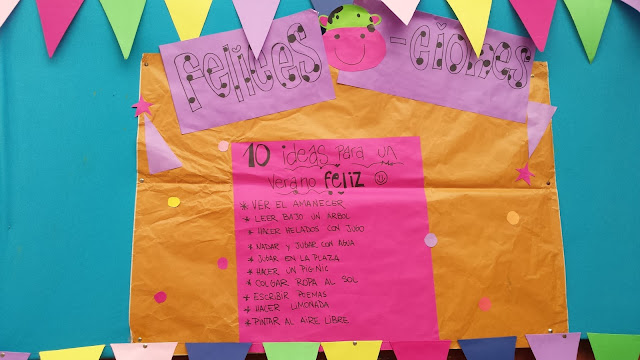 FELICES -CIONES
10 ideas para un
verano feliz
* VER EL AMANECER
* LEER BAJO UN ARBOL
* HACER HELADOS CON JUGO
* NADAR Y JUGAR CON AGUA
* JUGAR EN LA PLAZA
* HACER UN PIC-NIC
* COLGAR ROPA AL SOL
* ESCRIBIR POEMAS
* HACER LIMONADA
* PINTAR AL AIRE LIBRE